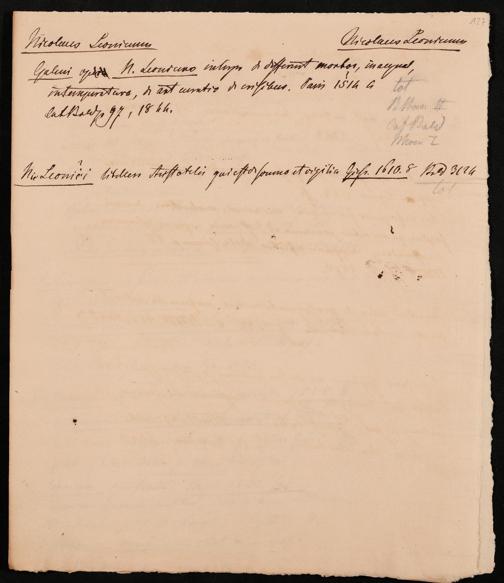 127
Nicolaus Leonicenus Nicolaus Leonicenus
Galeni N. Leoniceno interpr de different morbor, inaequal,
intemperatura, di art curativa di crisibus. Paris 1514 4
Cat Bald p 97, 1844.
tot
Cat Bald
Nic Leonici libellus Aristotelis qui est de somno et vigilia 1610. 8 3124
tot